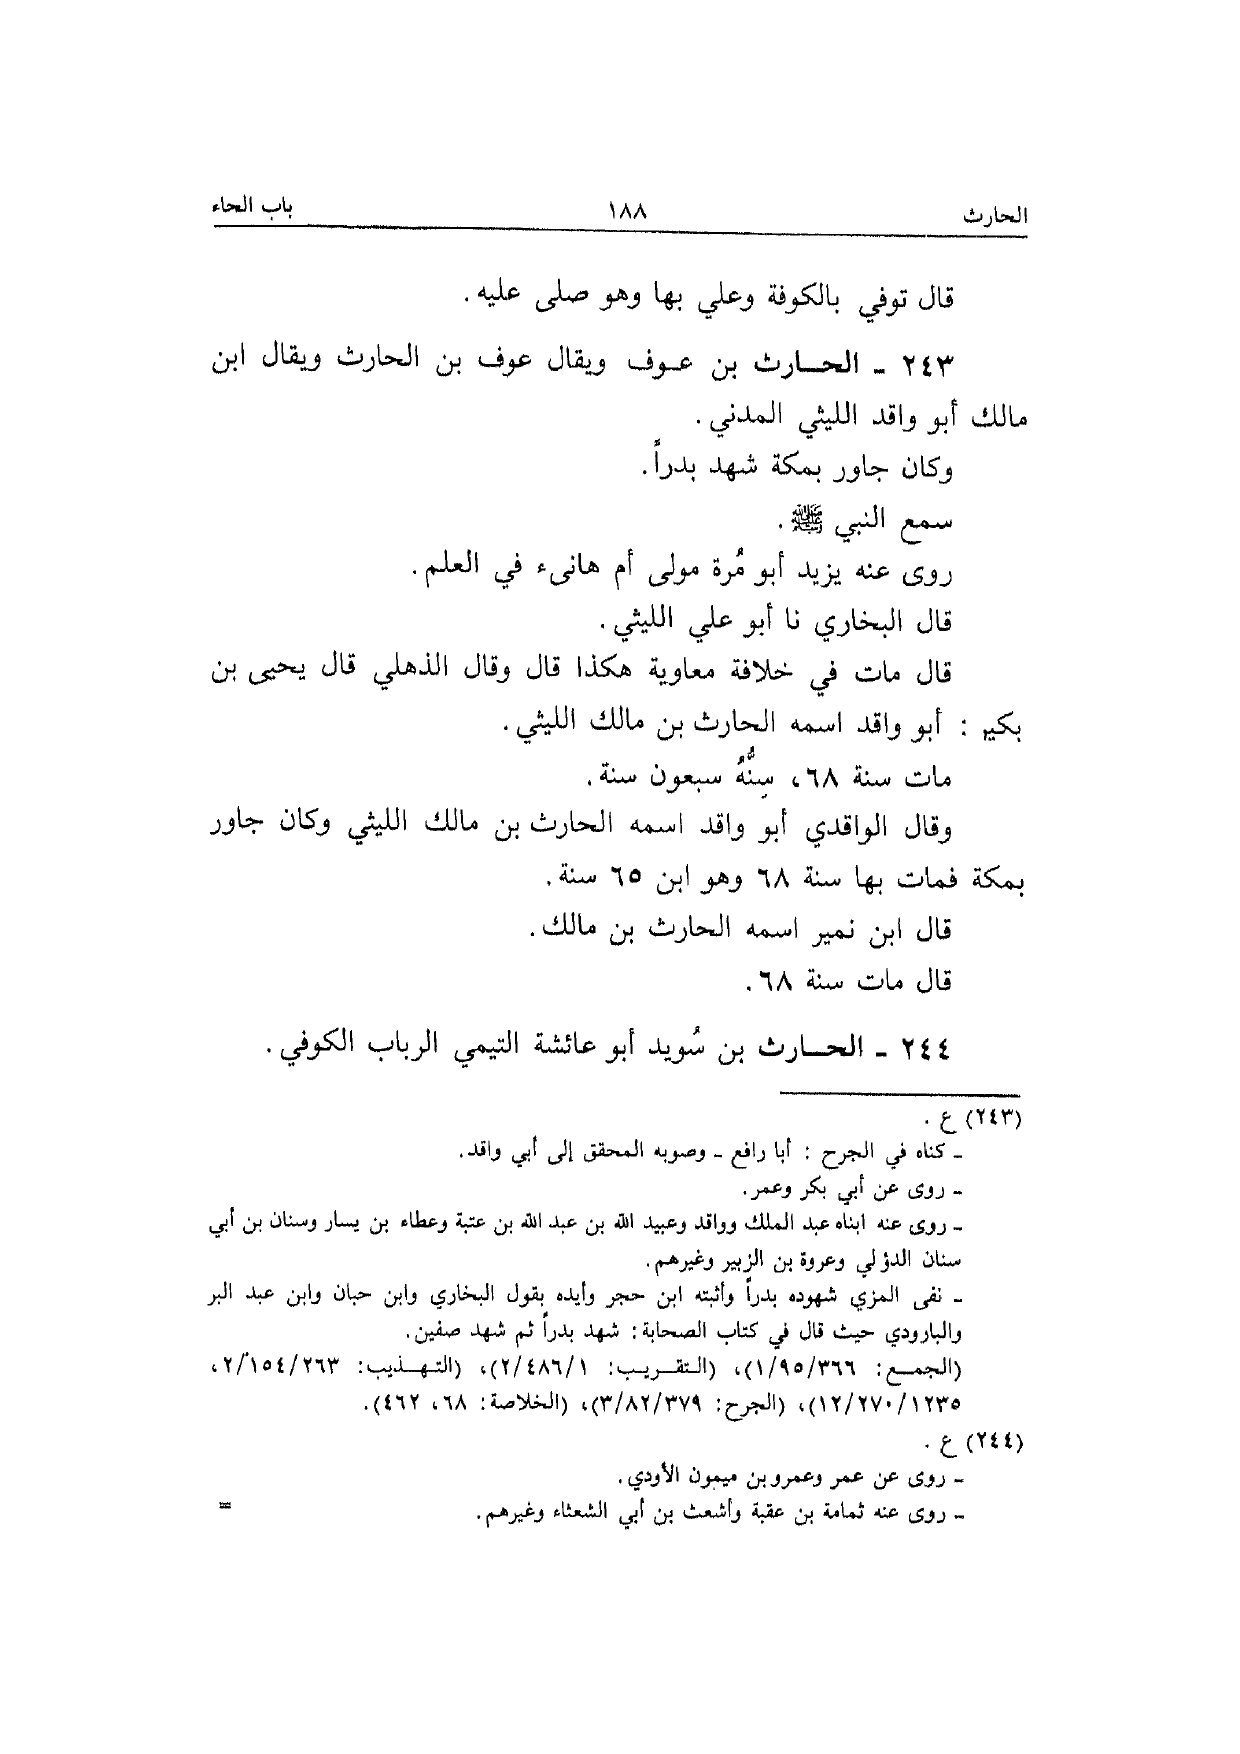 الحارث ١٨٨ باب الحاء
قال توفي بالكوفة وعلي بها وهو صلى عليه .
٢٤٣ ـ الحـارث بن عـوف ويقال عوف بن الحارث ويقال ابن
مالك أبو واقد الليثي المدني .
وكان جاور بمكة شهد بدراً .
سمع النبي ﷺ .
روى عنه يزيد أبو مُرة مولى أم هانىء في العلم .
قال البخاري نا أبو علي الليثي .
قال مات في خلافة معاوية هكذا قال وقال الذهلي قال يحيى بن
بكير : أبو واقد اسمه الحارث بن مالك الليثي .
مات سنة ٦٨، سِنُّهُ سبعون سنة .
وقال الواقدي أبو واقد اسمه الحارث بن مالك الليثي وكان جاور
بمكة فمات بها سنة ٦٨ وهو ابن ٦٥ سنة .
قال ابن نمير اسمه الحارث بن مالك .
قال مات سنة ٦٨ .
٢٤٤ ـ الحـارث بن سُويد أبو عائشة التيمي الرباب الكوفي .
(٢٤٣) ع .
ـ كناه في الجرح : أبا رافع ـ وصوبه المحقق إلى أبي واقد .
ـ روى عن أبي بكر وعمر .
ـ روى عنه ابناه عبد الملك وواقد وعبيد الله بن عبد الله بن عتبة وعطاء بن يسار وسنان بن أبي
سنان الدؤلي وعروة بن الزبير وغيرهم .
ـ نفى المزي شهوده بدراً وأثبته ابن حجر وأيده بقول البخاري وابن حبان وابن عبد البر
والبارودي حيث قال في كتاب الصحابة : شهد بدراً ثم شهد صفين .
(الجمـع : ١/٩٥/٣٦٦)، (التقـريـب : ٢/٤٨٦/١)، (التهـذيب : ٢/١٥٤/٢٦٣،
١٢/٢٧٠/١٢٣٥)، (الجرح : ٣/٨٢/٣٧٩)، (الخلاصة : ٦٨، ٤٦٢) .
(٢٤٤) ع .
ـ روى عن عمر وعمرو بن ميمون الأودي .
ـ روى عنه ثمامة بن عقبة وأشعث بن أبي الشعثاء وغيرهم . =